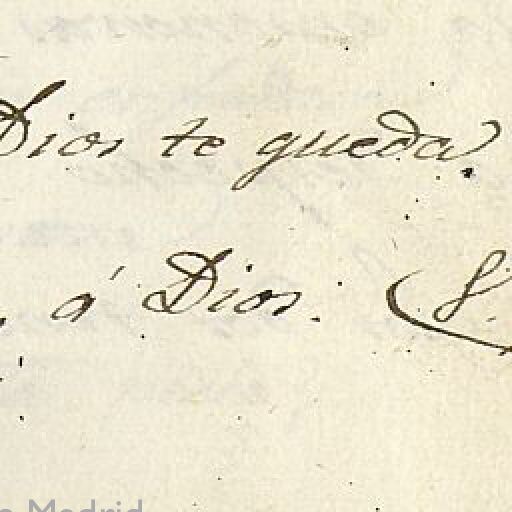 Dios te queda.
á Dios. (S.
Madrid